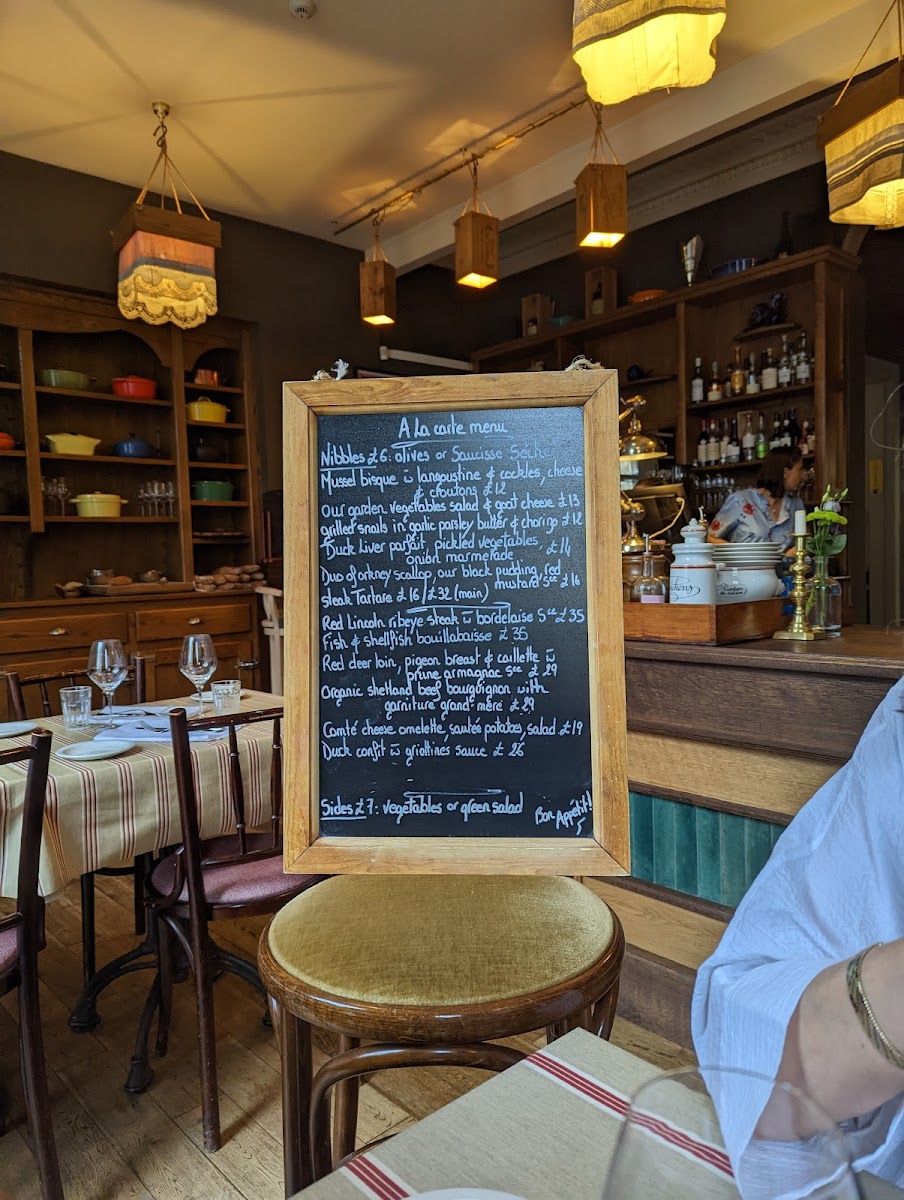 A La carte menu
Nibbles £6: olives or Saucisse Sèche
Mussel bisque w̄ langoustine & cockles, cheese
& croutons £12
Our garden vegetables salad & goat cheese £13
grilled snails in garlic parsley butter & chorizo £12
Duck Liver parfait pickled vegetables, £14
onion marmerade
Duo of orkney scallop, our black pudding, red
mustard sce £16
steak Tartare £16/£32 (main)
Red Lincoln ribeye steak w̄ bordelaise sce £35
Fish & shellfish bouillabaisse £35
Red deer loin, pigeon breast & caillette w̄
prune armagnac sce £29
Organic shetland beef bourguignon with
garniture grand-meré £29
Comté cheese omelette, sautée potatoes, salad £19
Duck confit w̄ griottines sauce £26
Sides £7: vegetables or green salad
Bon Appétit!